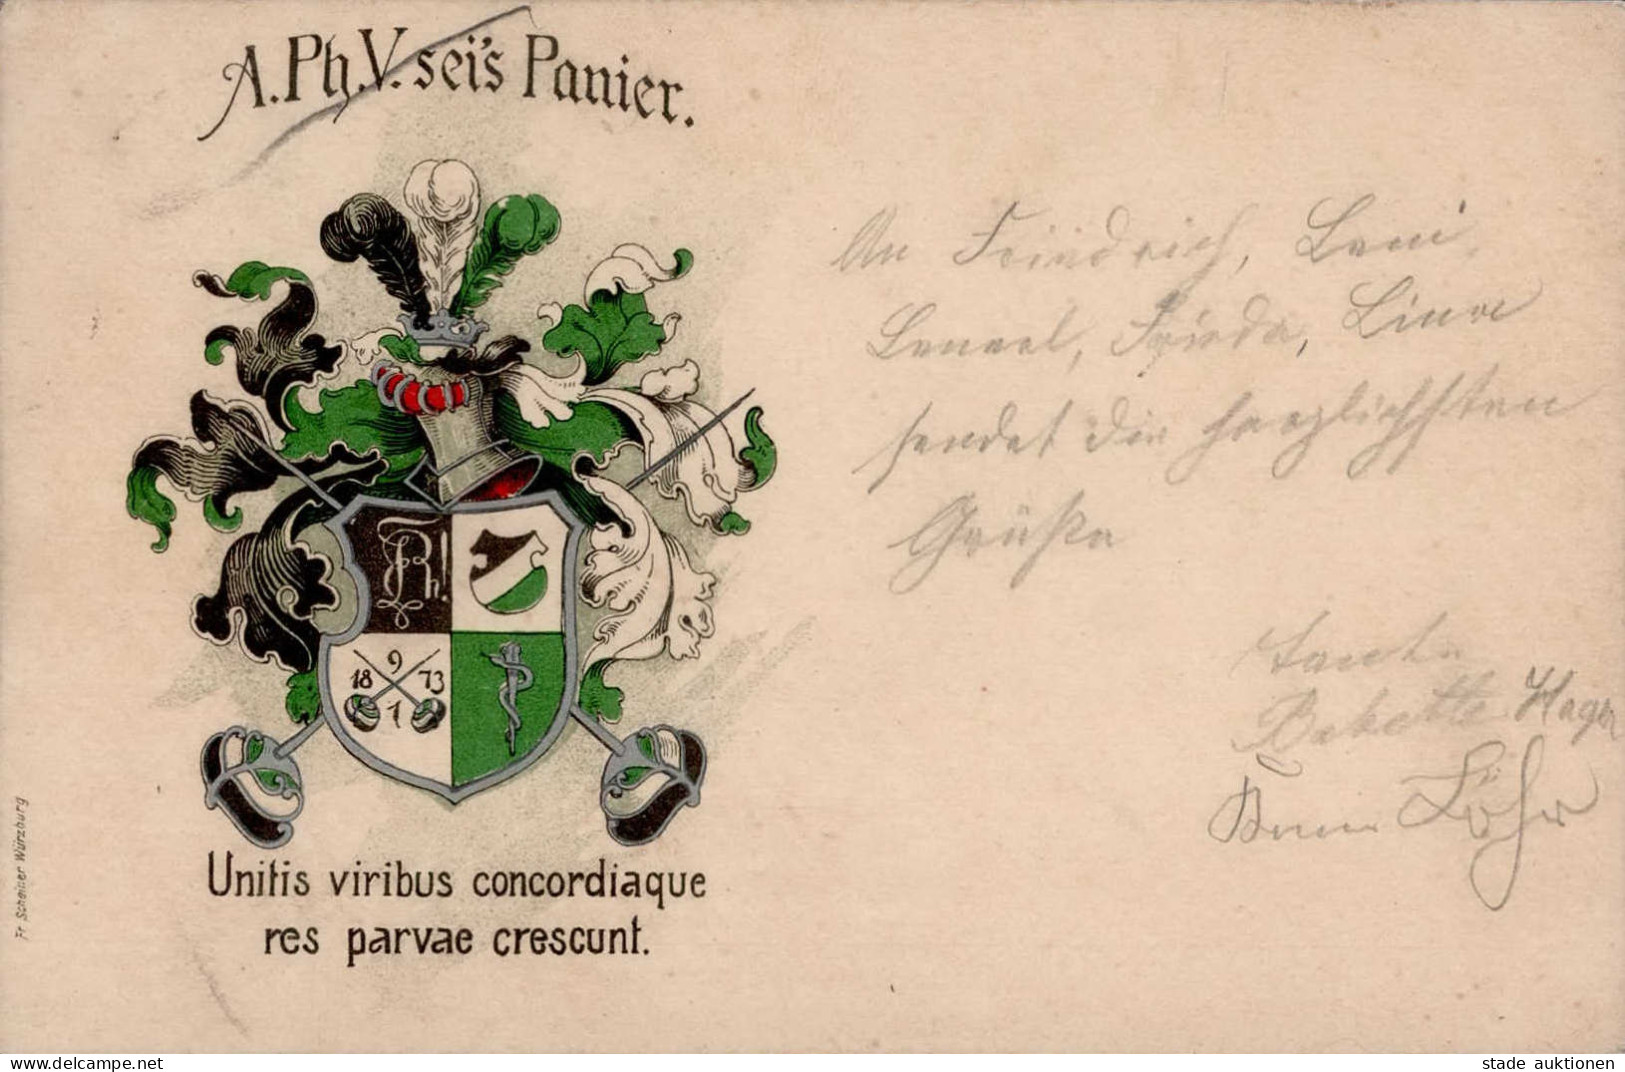 A. Ph. V. sei's Panier.
9
18 73
1
Unitis viribus concordiaque
res parvae crescunt.
Fr. Scheiner Würzburg
An Friedrich, Leni,
Frieda, Lina
sendet die herzlichsten
Grüße
Tante
Babette Hagen
Löhr
www.delcampe.net
stade auktionen